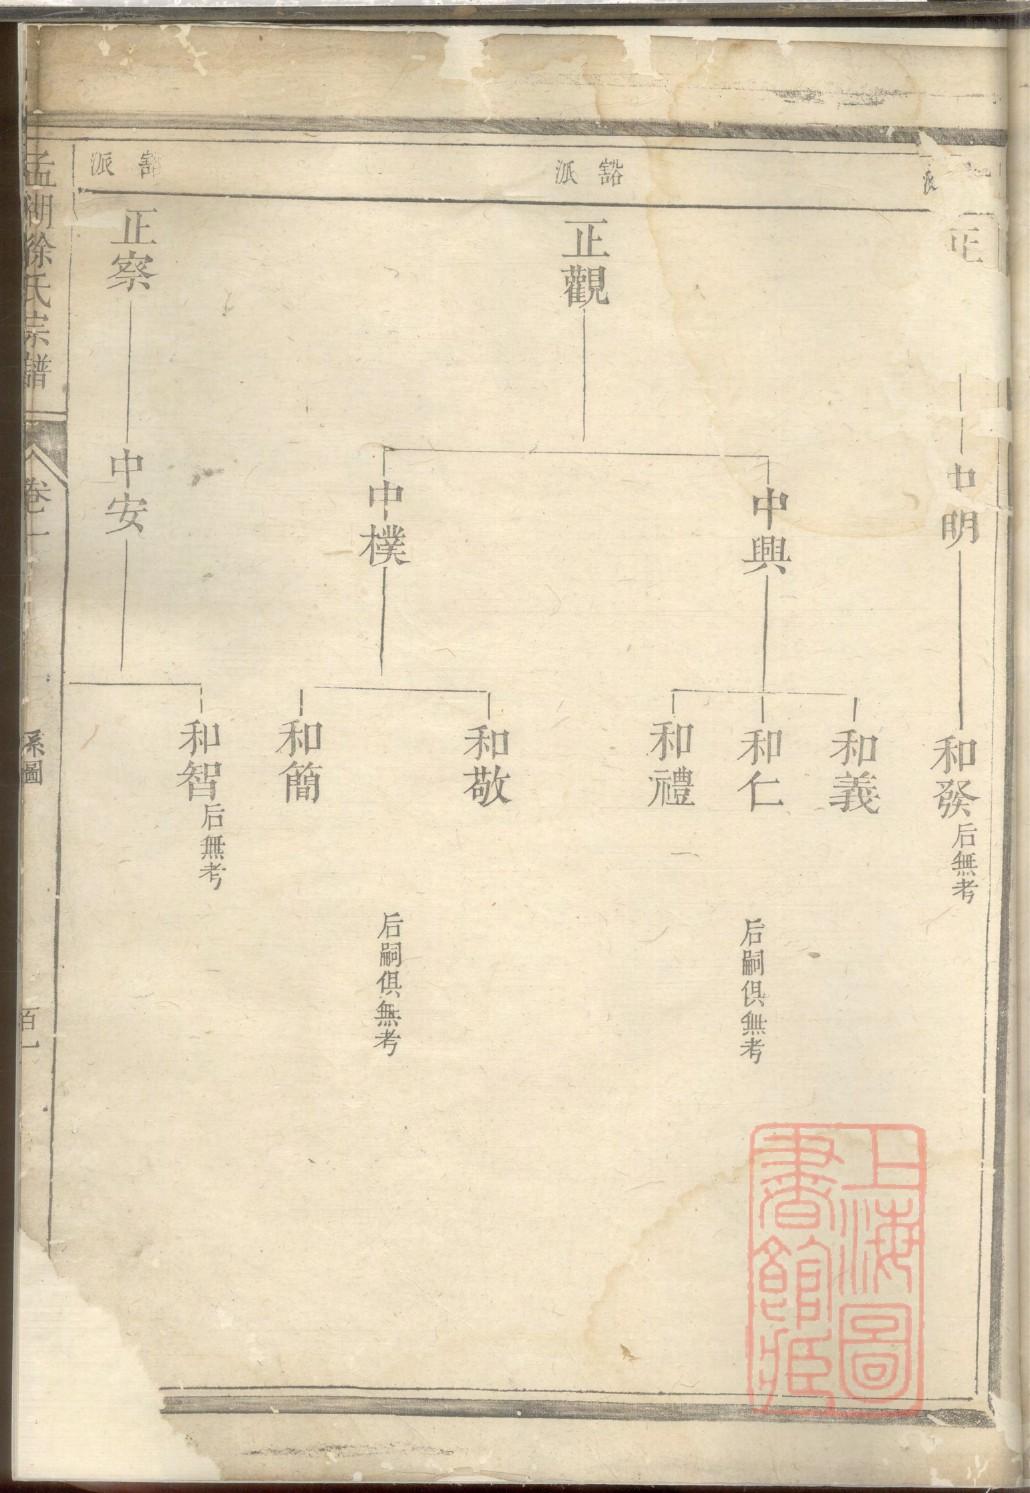 派
正
中明
和發
后無考
豁派
正觀
中興
和義
和仁
和禮
后嗣俱無考
中樸
和敬
和簡
后嗣俱無考
豁派
正察
中安
和智
后無考
孟湖徐氏宗譜
卷一
系圖
百一
上海圖
書館藏